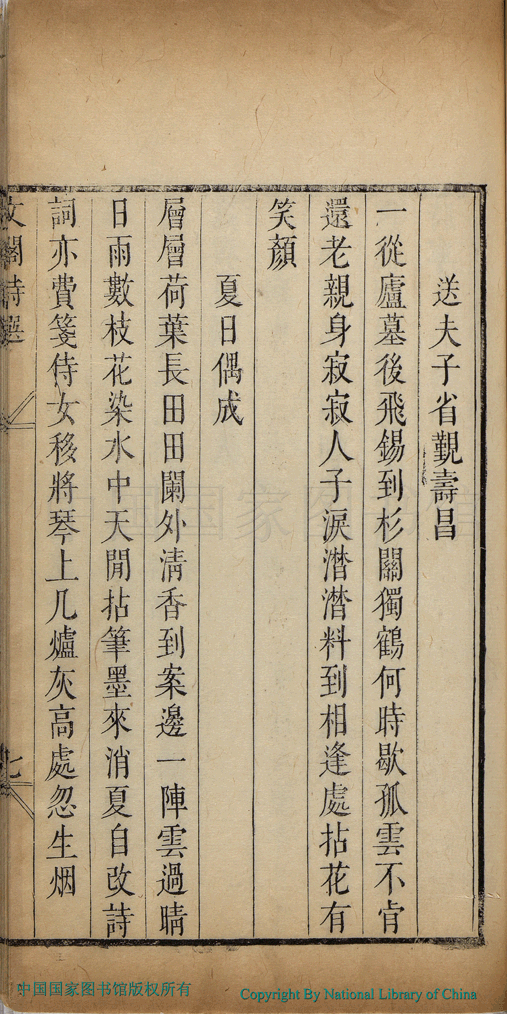 送夫子省覲壽昌
一從廬墓後飛錫到杉關獨鶴何時歇孤雲不肯
還老親身寂寂人子淚潸潸料到相逢處拈花有
笑顏
夏日偶成
層層荷葉長田田闌外清香到案邊一陣雲過晴
日雨數枝花染水中天閒拈筆墨來消夏自改詩
詞亦費箋侍女移將琴上几爐灰高處忽生烟
七
中国国家图书馆版权所有
Copyright By National Library of China